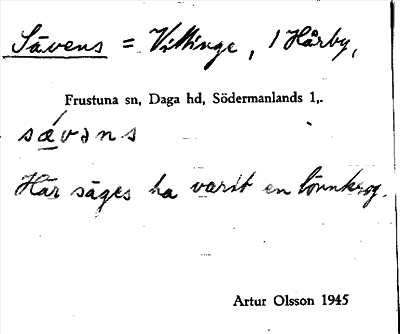 Sävens = Vittinge, 1 Hårby,
Frustuna sn, Daga hd, Södermanlands l,.
sǽvəns
Här säges ha varit en lönnkrog.
Artur Olsson 1945